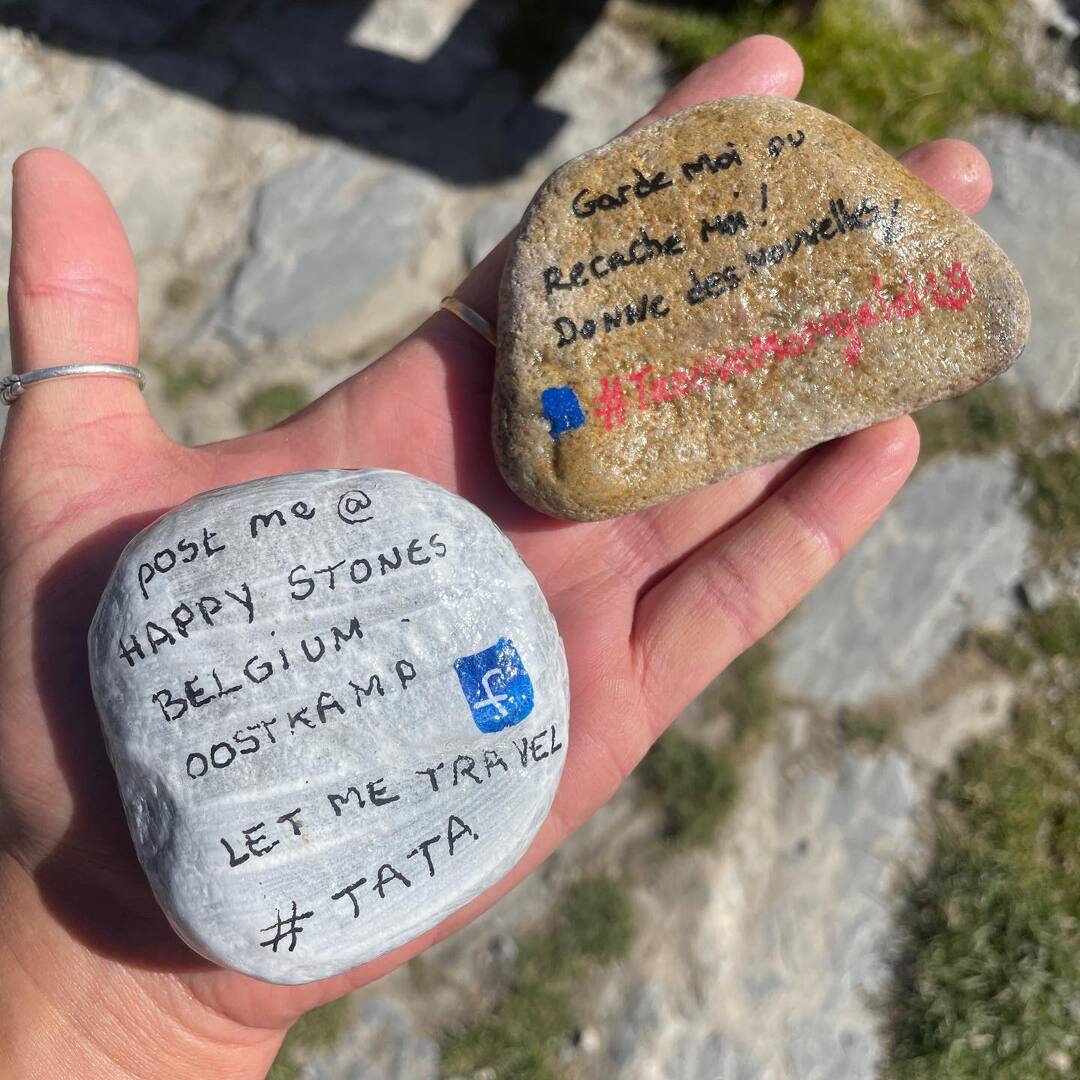 Garde Moi ou
Recache Moi !
Donne des Nouvelles !
#Trouvemongalet29
Post me @
HAPPY STONES
BELGIUM
OOSTKAMP
f
LET ME TRAVEL
# TATA